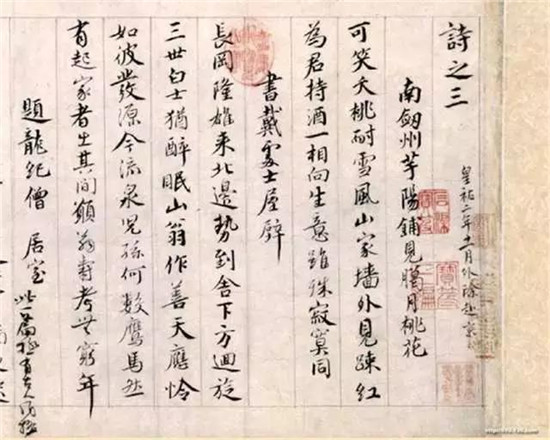 詩之三
皇祐二年十一月外除赴京
南劍州芋陽鋪見臘月桃花
可笑夭桃耐雪風山家墻外見踈紅
為君持酒一相向生意雖殊寂寞同
書戴處士屋壁
長岡隆雄來北邊勢到舍下方迴旋
三世白士猶醉眠山翁作善天應憐
如彼發源今流泉兒孫何數鷹馬然
有起家者出其間願翁壽考無窮年
題龍紀僧居室 此篇極有古人風格